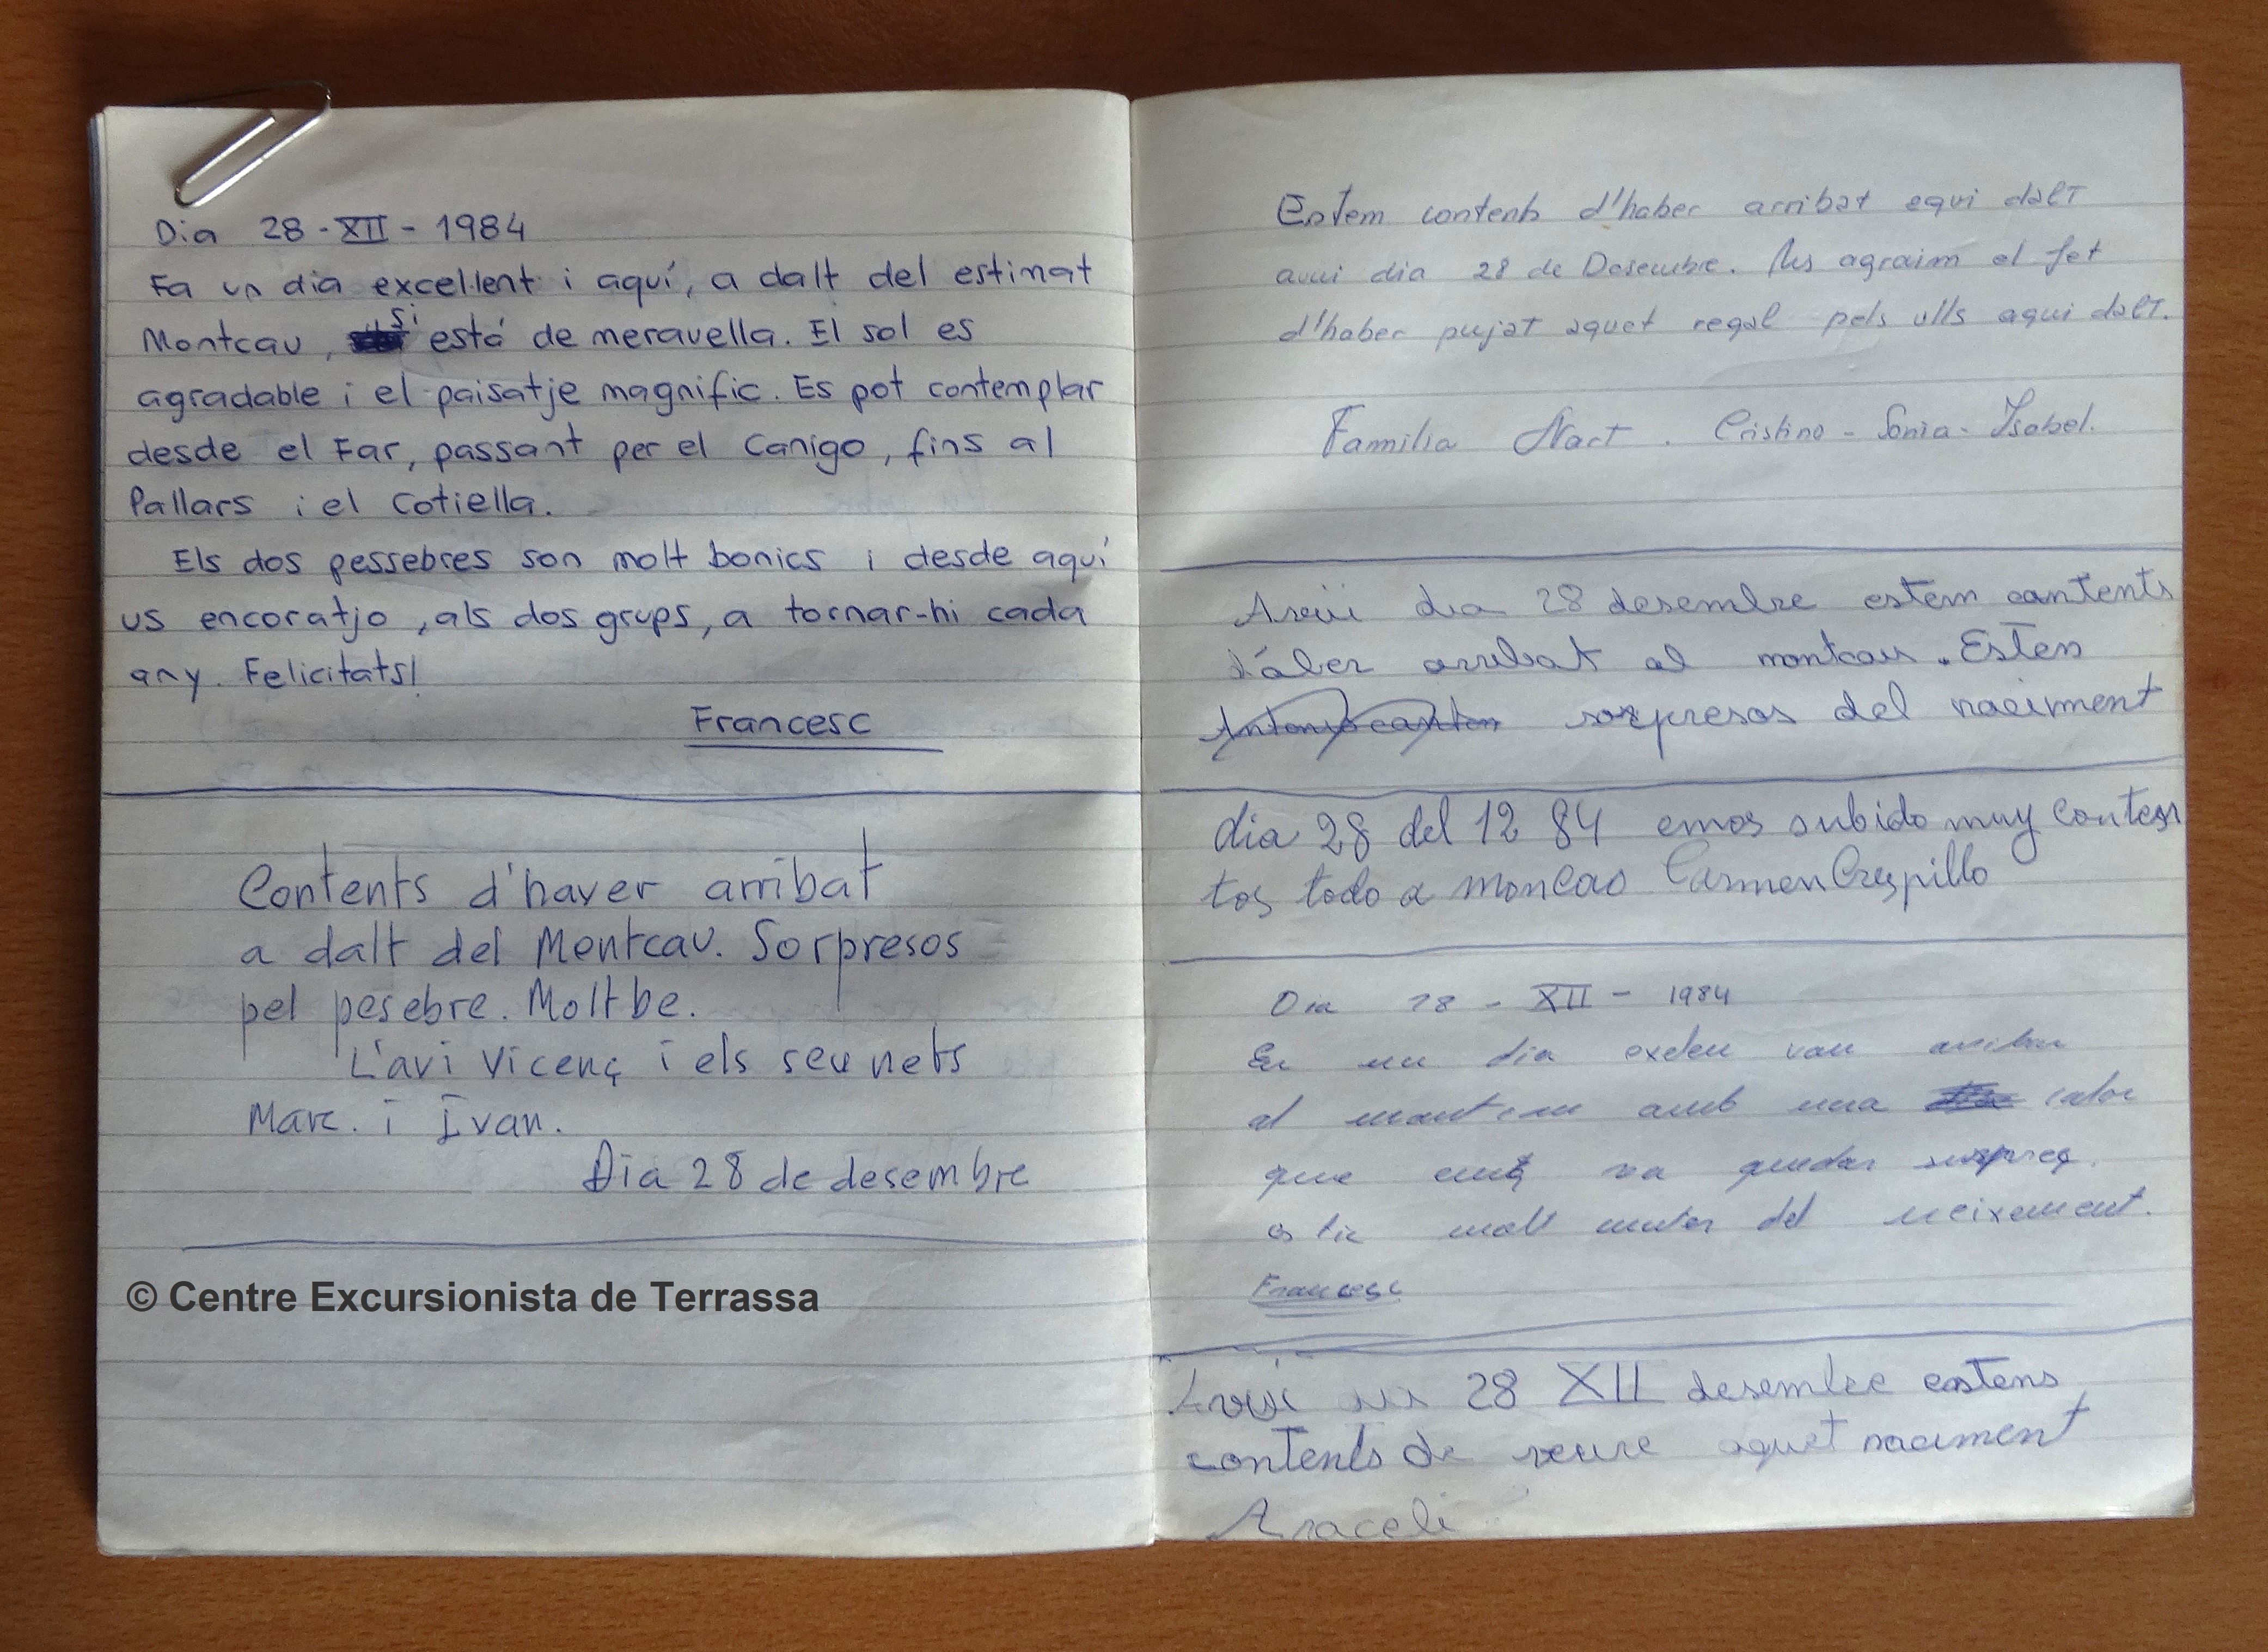 Dia 28-XII-1984
Fa un dia excel·lent i aquí, a dalt del estimat
Montcau, si está de meravella. El sol es
agradable i el paisatje magnific. Es pot contemplar
desde el Far, passant per el Canigo, fins al
Pallars i el Cotiella.
Els dos pessebres son molt bonics i desde aquí
us encoratjo, als dos grups, a tornar-hi cada
any. Felicitats!
Francesc
Contents d'haver arribat
a dalt del Montcau. Sorpresos
pel pesebre. Molt be.
L'avi Vicenç i els seu nets
Marc. i Ivan.
Dia 28 de desembre
© Centre Excursionista de Terrassa
Estem contents d'haber arribat equi dalt
avui dia 28 de Desembre. Us agraim el fet
d'haber pujat aquet regal pels ulls aqui dalt.
Familia Nart. Cristino - Sonia - Isabel.
Avui dia 28 desembre estem cantents
d'áber arribat al montcau. Esten
sorpresos del naciment
dia 28 del 12 84 emos subido muy conten
tos todo a moncao Carmen Crespillo
Dia 28 - XII - 1984
En un dia van
al amb una calor
que va quedar
estic molt del neixement.
Francesc
Avui 28 XII desembre estens
contents de veure aquet naciment
Araceli